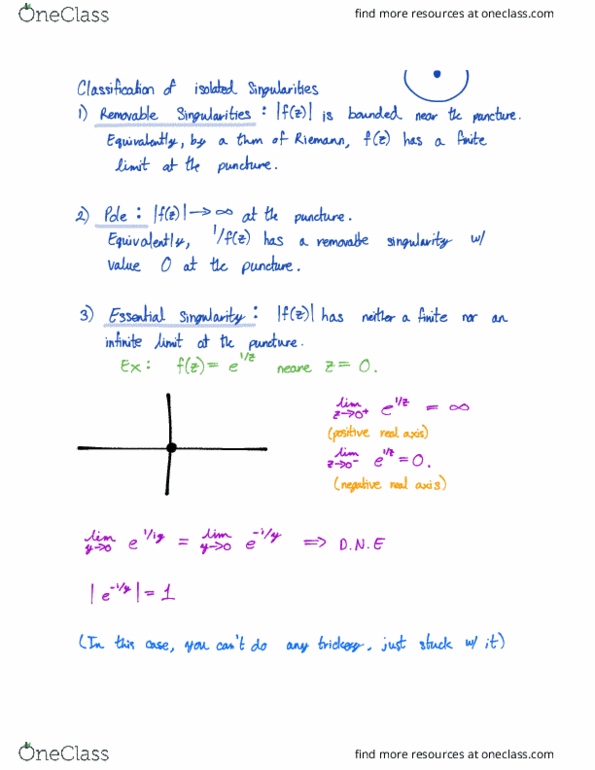 OneClass
find more resources at oneclass.com
Classification of isolated Singularities
1) Removable Singularities : |f(z)| is bounded near the puncture.
Equivalently, by a thm of Riemann, f(z) has a finite
limit at the puncture.
2) Pole : |f(z)| → ∞ at the puncture.
Equivalently, 1/f(z) has a removable singularity w/
value 0 at the puncture.
3) Essential Singularity : |f(z)| has neither a finite nor an
infinite limit at the puncture.
Ex: f(z) = e^{1/z} neare z = 0.
lim z→0⁺ e^{1/z} = ∞
(positive real axis)
lim z→0⁻ e^{1/z} = 0.
(negative real axis)
lim y→0 e^{1/iy} = lim y→0 e^{-i/y} ⇒ D.N.E
|e^{-i/y}| = 1
(In this case, you can't do any trickery, just stuck w/ it)
OneClass
find more resources at oneclass.com